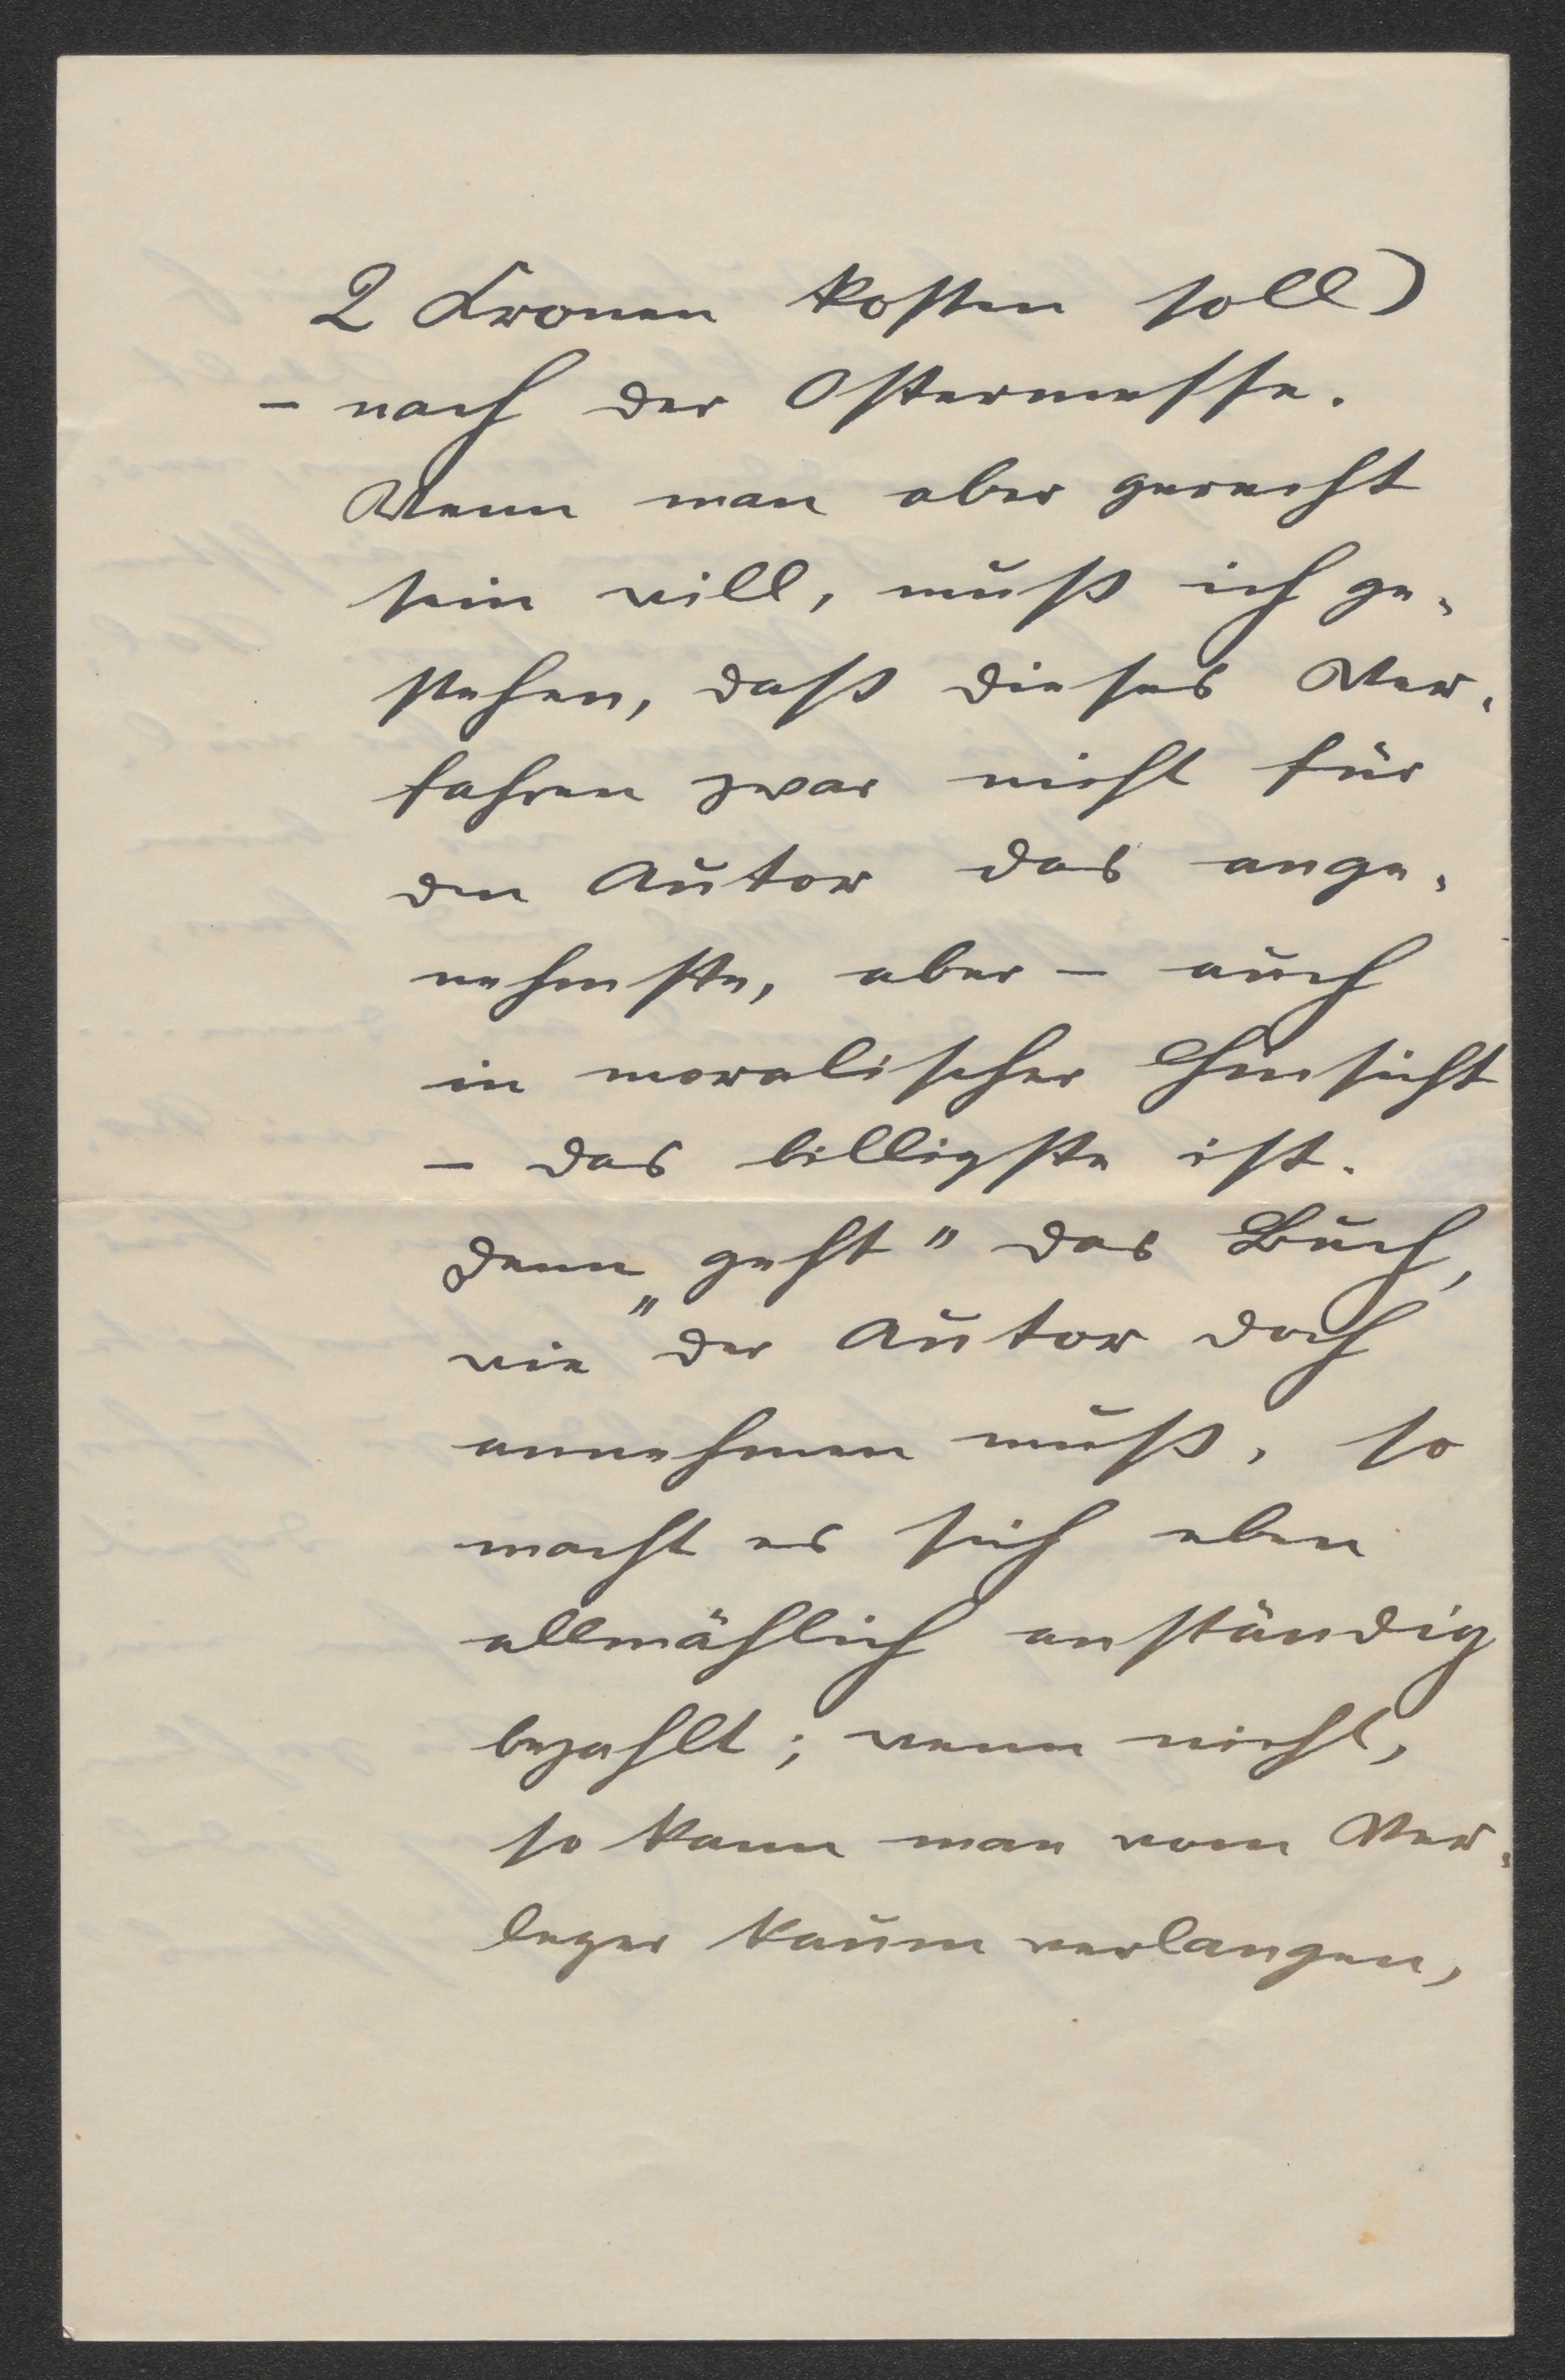 2 Kronen kosten soll)
– nach der Ostermesse.
Wenn man aber gerecht
sein will, muß ich ge-
stehen, daß dieses Ver-
fahren zwar nicht für
den Autor das ange-
nehmste, aber – auch
in moralischer Hinsicht
– das billigste ist.
Denn „geht" das Buch,
wie der Autor doch
annehmen muß, so
macht es sich eben
allmählich anständig
bezahlt; wenn nicht,
so kann man vom Ver-
leger kaum verlangen,